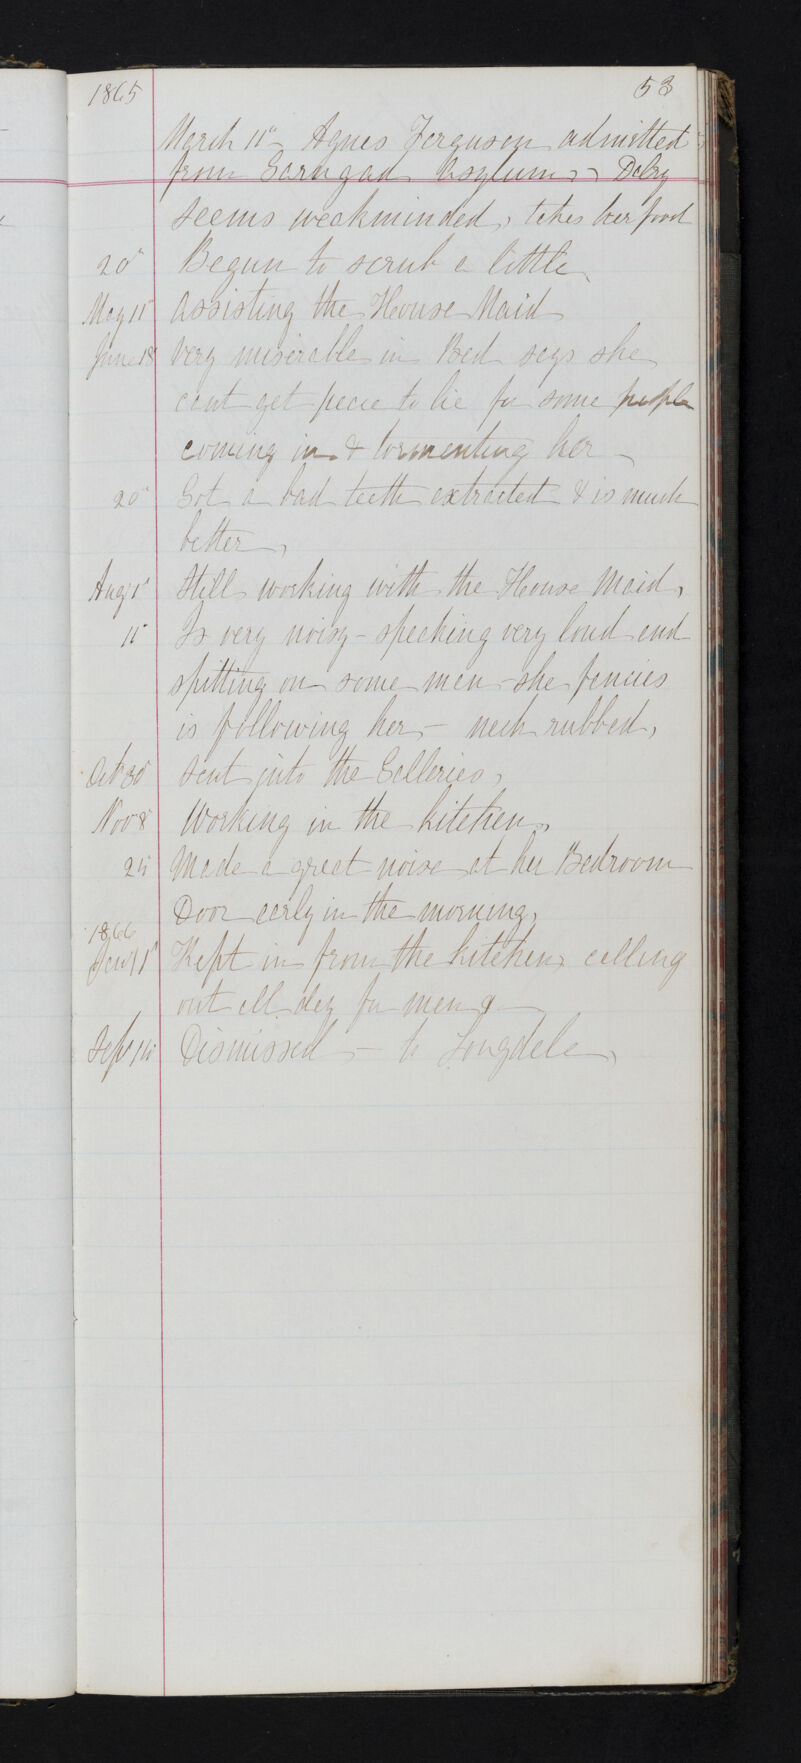 1865 53
March 11" Agnes Ferguson admitted
from Garngad Asylum, Dalry
seems weakminded, takes her food
20" Begun to scrub a little
May 11" Assisting the House Maid
June 18 Very miserable in Bed says she
cant get peace to lie for some people
coming in & tormenting her
20" Got a bad teeth extracted & is much
better,
Aug 1" Still working with the House Maid,
11" Is very noisy - speaking very loud and
spitting on some men she fancies
is following her - neck rubbed,
Oct 30" Sent into the Galleries,
Nov 8" Working in the kitchen,
25 Made a great noise at her Bedroom
Door early in the morning,
1866
Jany 1" Kept in from the kitchen calling
out all day for men
Sept Dismissed - to Longdale